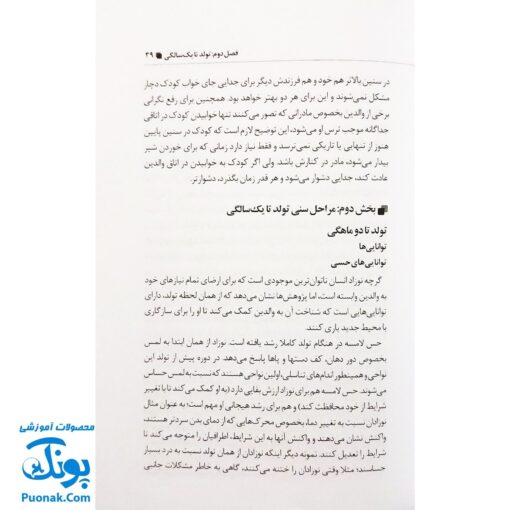 فصل دوم: تولد تا یک‌سالگی ۳۹
در سنین بالاتر هم خود و هم فرزندش دیگر برای جدایی جای خواب کودک دچار
مشکل نمی‌شوند و این برای هر دو بهتر خواهد بود. همچنین برای رفع نگرانی
برخی از والدین بخصوص مادرانی که تصور می‌کنند تنها خوابیدن کودک در اتاقی
جداگانه موجب ترس او می‌شود، این توضیح لازم است که کودک در سنین پایین
هنوز از تنهایی یا تاریکی نمی‌ترسد و فقط نیاز دارد زمانی که برای خوردن شیر
بیدار می‌شود، مادر در کنارش باشد. ولی اگر کودک به خوابیدن در اتاق والدین
عادت کند، جدایی دشوار می‌شود و هر قدر زمان بگذرد، دشوارتر.
بخش دوم: مراحل سنی تولد تا یک‌سالگی
تولد تا دو ماهگی
توانایی‌ها
توانایی‌های حسی
گرچه نوزاد انسان ناتوان‌ترین موجودی است که برای ارضای تمام نیازهای خود
به والدین وابسته است، اما پژوهش‌ها نشان می‌دهد که از همان لحظه تولد، دارای
توانایی‌هایی است که شناخت آن به والدین کمک می‌کند تا او را برای سازگاری
با محیط جدید یاری کنند.
حس لامسه در هنگام تولد کاملا رشد یافته است. نوزاد از همان ابتدا به لمس
بخصوص دور دهان، کف دستها و پاها پاسخ می‌دهد. در دوره پیش از تولد این
نواحی و همینطور اندام‌های تناسلی، اولین نواحی هستند که نسبت به لمس حساس
می‌شوند. حس لامسه هم برای نوزاد ارزش بقایی دارد (به او کمک می‌کند تا با تغییر
شرایط از خود محافظت کند) و هم برای رشد هیجانی او مهم است؛ به عنوان مثال
نوزادان نسبت به تغییر دما، بخصوص محرک‌هایی که از دمای بدن سردتر هستند،
واکنش نشان می‌دهند و واکنش آنها به این شرایط، اطرافیان را متوجه می‌کند تا
شرایط را تعدیل کنند. نمونه دیگر اینکه نوزادان از همان تولد نسبت به درد بسیار
حساسند؛ مثلا وقتی نوزادان را ختنه می‌کنند، گاهی به خاطر مشکلات جانبی
محصولات آموزشی
پونک
Puonak.Com